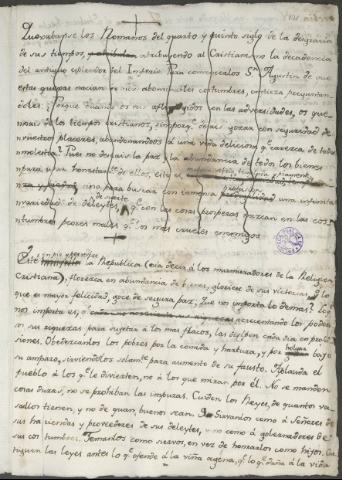 Quexabanse los Romanos del quarto y quinto siglo de la desgracia
de sus tiempos, atribuyendo al Cristianismo la decadencia
del antiguo esplendor del Imperio. Para convencerlos Sn. Agustin de que
estas quexas nacian de sus abominables costumbres, empieza preguntan-
doles: porque quando os veis afligidos con las adversidades, os que-
xais de los tiempos cristianos, sino porq.e deseais gozar con seguridad de
vuestros placeres, abandonandoos à una vida deliciosa q.e carezca de toda
molestia? Pues no deseais la paz, y la abundancia de todos los bienes
para usar honestam.te de ellos, esto es
sino para buscar con inmensa prodigalidad una infinita
variedad de deleytes, y q.e con las cosas prosperas nazcan en las cos-
tumbres peores males q.e los mas crueles enemigos.
Esté en pie la Republica (eso decia à los murmuradores de la Religion
Cristiana), florezca en abundancia de bienes, gloriese de sus victorias, y lo
que es mayor felicidad, goce de segura paz. Que nos importa lo demas? Lo q.e
nos importa es, q.e acrecentando los podero-
sos sus riquezas para sujetar à los mas flacos, las disipen cada dia en profu-
siones. Obedezcanlos los pobres por la comida y hartura, y por holgar bajo
su amparo, sirviendoles solam.te para aumento de su fausto. Aplauda el
pueblo à los q.e le divierten, no à los que miran por él. No se manden
cosas duras, ni se prohiban las impuras. Cuiden los Reyes, de quantos va-
sallos tienen, y no de quan buenos sean. Sirvanlos como à Señores de
sus haciendas y proveedores de sus deleytes, y no como à gobernadores de
sus costumbres. Temanlos como siervos, en vez de honrarlos como hijos. Cas-
tiguen las leyes antes lo q.e ofende à la viña agena, q.e lo q.e daña à la vida